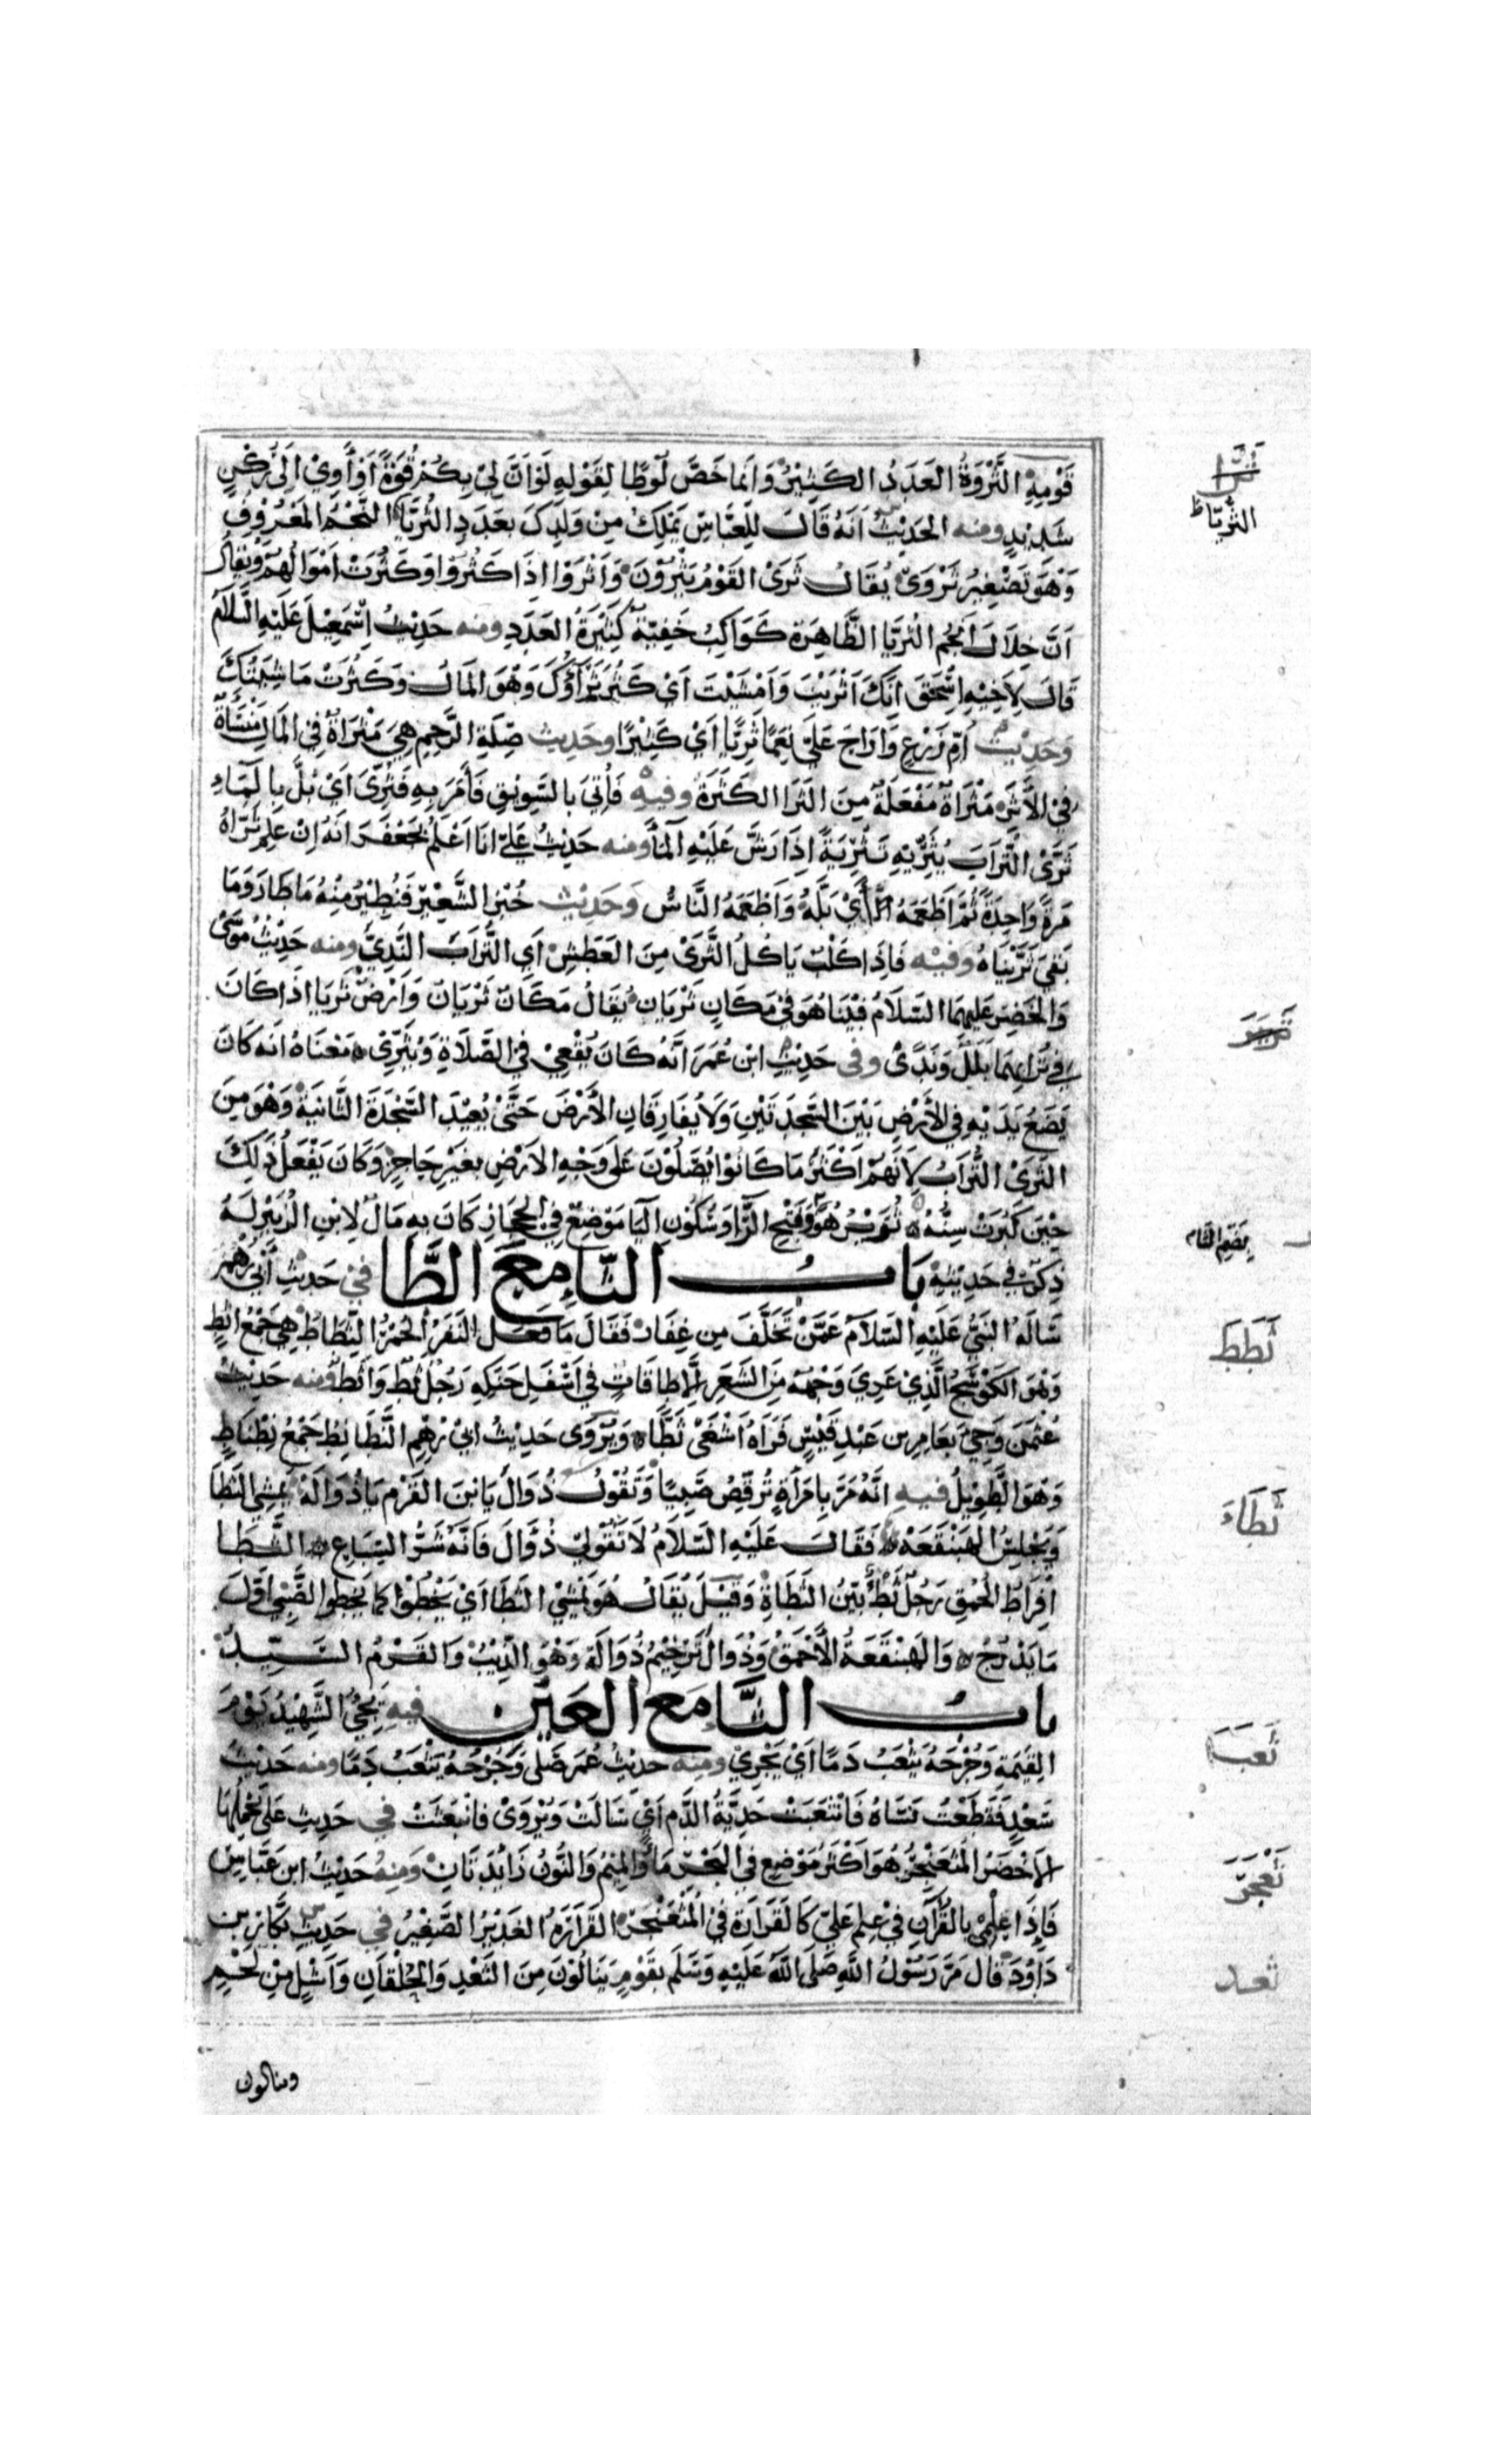 قَوْمِهِ الثَّرْوَةُ العَدَدُ الكَثِيْرُ وَاَنما خَصَّ لُوطًا لِقَوْلِهِ لَوْاَنَّ لِيْ بِكُمْ قُوَةً اَوْ اٰوِيْ اِلى رُكْنٍ
شَدِيْدٍ ومنه الحَدِيْثُ اَنَهُ قَالَ لِلعَبَّاسِ يَمْلِكُ مِنْ وَلَدِكَ بعَدَدِ الثُرَيَّا النَجْمُ المَعْرُوفُ
وَهُوَ تَصْغِيْرُ ثَرْوَىْ يُقَالُ ثَرَىْ القَوْمُ يَثْرُوْنَ وَاَثْرَوْا اِذَا كَثُرُوْا وَكَثُرَتْ اَمْوَالُهُمْ وَيُقَالُ
اَنَّ خِلَالَ اَنْجُمِ الثُريَا الظَّاهِرَة كَوَاكِبُ خَفِيّةٌ كَثِيْرَةُ العَدَدِ ومنه حَدِيْثُ اِسْمٰعِيْلَ عَلَيْهِ السَّلَامُ
قَالَ لِاَخِيْهِ اِسْحٰقَ اَنَّكَ اَثْرَيْتَ وَاَمْشَيْتَ اَيْ كَثُرَ ثَرَاؤُكَ وَهُوَ المَالُ وَكَثُرَتْ مَاشِيَتُكَ
وَحَدِيْثُ اُمِّ زَرْعٍ وَاَرَاحَ عَلَيَّ نِعَمًا ثَرِيًّا اَيْ كَثِيْرًا وحَدِيث صِلَةِ الرَّحِمِ هِيَ مَثْرَاةٌ فِي المَالِ مَنْسَأَةٌ
فِيْ الْاَثَرِ مَثْرَاةٌ مَفْعَلَةٌ مِنَ الثَرَا الكَثَرَةُ وفيهِ فَاُتِيَ بِالسَوِيْقِ فَأَمَرَ بِهِ فَثُرِّىَ اَيْ بُلَّ بِالمَاءِ
ثَرَّىْ التُرَابَ يُثَرِّيْهِ تَثْرِيَةً اِذَا رَشَّ عَلَيْهِ المَآءَ ومنه حَدِيْثُ عَلِيٍّ اَنَا اَعْلَمُ بِجَعْفَرَ اَنَهُ اِنْ عَلِمَ ثَرَّاهُ
مَرةً وَاحِدَةً ثُمَّ اَطْعَمَهُ اَيْ بَلَّهُ وَاَطْعَمَهُ النَّاسُ وَحَدِيْث خُبْزِ الشَّعِيْرِ فَيُطِيْرُ مِنْهُ مَا طَارَ وَمَا
بَقِيَ ثَرَّيْنَاهُ وَفِيْه فَاِذَا كَلْبٌ يَاكُلُ الثَّرىْ مِنَ العَطَشِ اَيِ التُّرَابَ النَّدِيَّ ومنه حَدِيْثُ مُوسٰى
وَالخَضِرِ عَلَيْهِمَا السَّلَامُ فَبَيْنَا هُوَ فِيْ مَكَانٍ ثَرْيَانٍ يُقَالُ مَكَانٌ ثَرْيَانٌ وَاَرْضٌ ثَرْيَا اِذَا كَانَ
فِي تُرَابِهِمَا بَلَلٌ وَنَدًىْ وفى حَدِيْثِ ابْنِ عُمَرَ اَنَّهُ كَانَ يُقْعِيْ فِي الصَّلَاةِ وَيُثَرِّيْ مَعْنَاهُ اَنَهُ كَانَ
يَضَعُ يَدَيْهِ فِي الاَرْضِ بَيْنَ السَّجْدَتَيْنِ وَلَا يُفَارِقَانِ الأَرْضَ حَتَّىْ يُعِيْدَ السَّجْدَةَ الثَّانِيَةَ وَهُوَ مِنَ
الثَرَىْ التُّرَابُ لِاَنَهُمْ اَكْثَرُ مَا كَانُوْا يُصَلُّوْنَ عَلَى وَجْهِ الاَرْضِ بِغَيْرِ حَاجِزٍ وَكَانَ يَفْعَلُ ذٰلِكَ
حِيْنَ كَبُرَتْ سِنُّهُ ثُرَيْرُ هُوَ وَفَتْحِ الرَّا وَسُكُوْنِ اليَا مَوْضِعٌ فِي الحِجَازِ كَانَ بِهِ مَالٌ لِابْنِ الزُبَيْرِ لَهُ
ذِكْرٌ فِي حَدِيْثِهِ بَابُ الثَّا مَعَ الطَّا فِيْ حَدِيْثِ اَبِيْ رُهْمٍ
سَاَلَهُ النَبِيُّ عَلَيْهِ السَّلَامُ عَمَّنْ تَخَلَّفَ مِن غِفَار فَقَالَ مَا فَعَلَ النَفَرُ الحُمْرُ الثِّطَاطُ هِيَ جَمْعُ ثَطٍّ
وَهُوَ الكَوْسَجُ الَّذِيْ عَرِيَ وَجْهُهُ مِنَ الشَعَرِ اِلَّا طَاقَاتٍ فِي اَسْفَلِ حَنَكِهِ رَجُلٌ ثَطٌّ وَاَثَطُّ ومنه حَدِيْثُ
عُثْمٰنَ وَجِيْءَ بعَامِرِ بن عَبْدِ قَيْسٍ فَرَاَهُ اَشْغَىْ ثَطًّا وَيُرْوَى حَدِيْثُ ابِيْ رُهْمٍ النَّطَانِطُ جَمْعُ نَطْنَاطٍ
وَهُوَ الطَّوِيْلُ فيهِ اَنَّهُ مَرَّ بِامْرَأَةٍ تُرَقِّصُ صَبِيًا وَتَقُوْلُ ذُوَالُ يَا ابْنَ القَرْمِ يَا ذُوَالَهْ يَمْشِي الثَّطَا
وَيَجْلِسُ الهَبَنْقَعَهْ فَقَالَ عَلَيْهِ السَّلَامُ لَا تَقُوْلِيْ ذُؤَالَ فَاَنَّهُ شَرُّ السِّبَاعِ الثَّطَا
اِفْرَاطُ الحُمْقِ رَجُلٌ ثَطٌ بَيِّنُ الثَطَاةِ وَقِيْلَ يُقَالُ هُوَ يَمْشِيْ الثَطَا اَيْ يَخْطُوْا كَمَا يَخْطُوا الصَّبِيُّ اَوَّلَ
مَا يَدْرُجُ وَالهَبَنْقَعَةُ الْاَحْمَقُ وَذُوَالُ تَرْخِيْمُ ذُوَالَةَ وَهُوَ الذِئْبُ وَالقَرْمُ السَّيِّدُ
بابُ الثَّا مَعَ العَيْن فيهِ يَجِيْءُ الشَّهِيْدُ يَوْمَ
القِيٰمَةِ وَجُرْحُهُ يَثْعَبُ دَمًا اَيْ يَجْرِيْ ومِنْهُ حدِيْثُ عُمَرَ صَلّٰى وَجُرْحُهُ يَثْعَبُ دَمًا ومنه حَدِيْثُ
سَعْدٍ فَقَطَعْتُ نَسَاهُ فَانْثَعَبَتْ جَدِيَّةُ الدَّمِ اَيْ سَالَتْ وَيُرْوَىْ فَانْبَعَثَتْ في حَدِيثِ عَلِيٍّ يَحْمِلُهَا
الاَخْضَرُ المُثْعَنْجَرُ هُوَ اَكْثَرُ مَوْضِعٍ فِي البَحْرِ مَاءً وَالمِيْمُ وَالنُوْنُ زَائِدَتَانِ وَمِنْهُ حَدِيْثُ ابنِ عَبَّاسٍ
فَاِذَا عِلْمِيْ بِالقُرْآنِ فِيْ عِلْمِ عَلِيٍّ كَالقَرَارَةِ فِيْ المُثْعَنْجَرِ القَرَارَةُ الغَدِيْرُ الصَّغِيْرُ في حَدِيْثِ بَكَّارِ بن
دَاوٗدَ قَالَ مَرَّ رَسُوْلُ اللّٰهِ صَلَّى اللّٰهُ عَلَيْهِ وَسَلَّمَ بِقَوْمٍ يَنَالُوْنَ مِنَ الثَّعْدِ وَالحُلْقَانِ وَاَشْلٍ مِنْ لَحْمٍ
وينالون
ثَرَا
الثريّا ط
ثَرَيَرَ
بضم الثاء
ثَطَطَ
ثَطَاءَ
ثَعَبَ
ثَعْجَرَ
ثعد